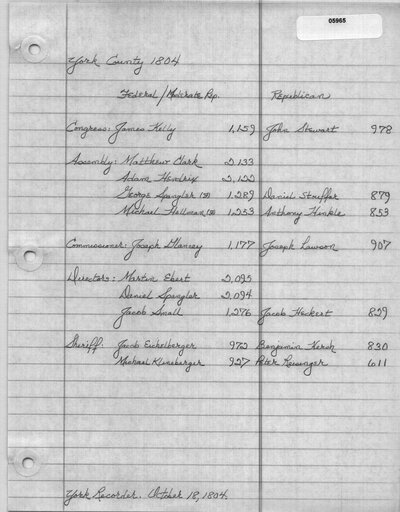 05965
York County 1804
Federal/Moderate Rep. Republican
Congress: James Kelly 1,159 John Stewart 978
Assembly: Matthew Clark 2,133
Adam Hendrix 2,122
George Spangler 1,289 Daniel Stauffer 879
Michael Hellman 1,253 Anthony Hinkle 853
Commissioner: Joseph Glancey 1,177 Joseph Lawson 907
Directors: Martin Ebert 2,095
Daniel Spangler 2,094
Jacob Small 1,276 Jacob Heckert 829
Sheriff: Jacob Eichelberger 972 Benjamin Hersh 830
Michael Klineberger 927 Peter Reisinger 611
York Recorder, October 18, 1804.